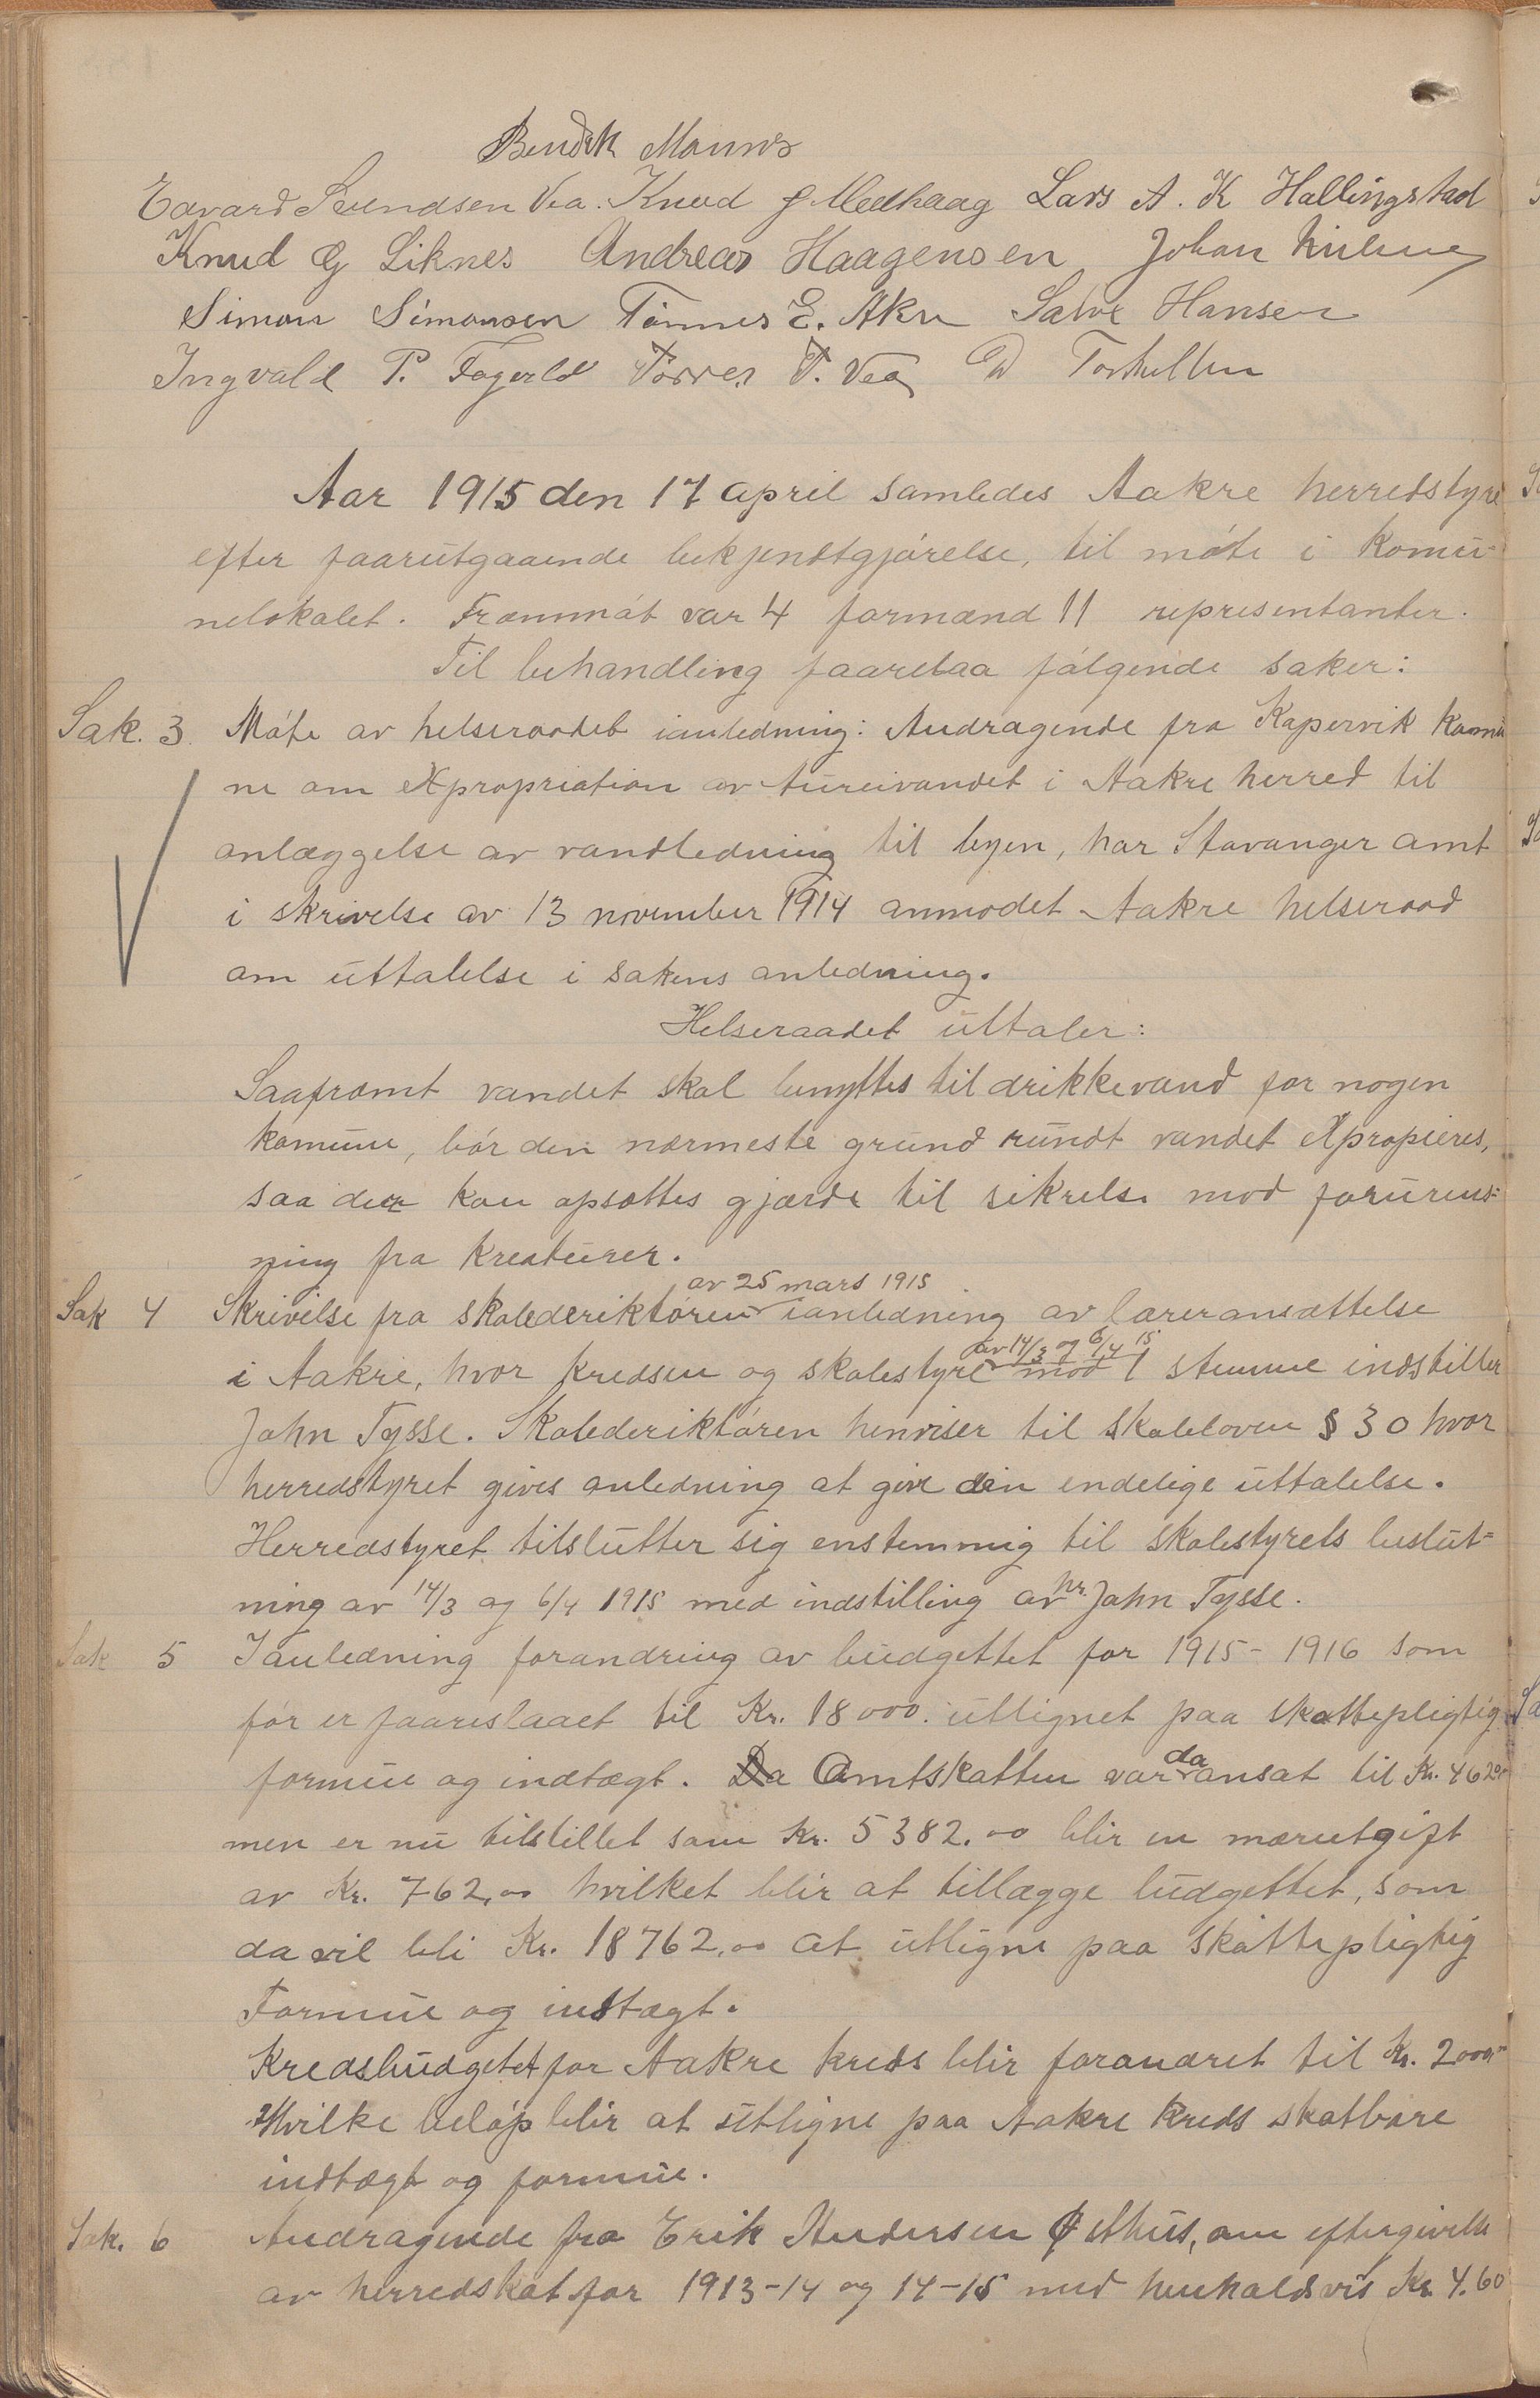 Bendik Mannes
Edvard Svendsen Vea. Knud J Medhaag Lars A. K Hallingstad
Knud G Liknes Andreas Haagensen Johan
Simon Simonsen Tønnes E. Akre Salve Hansen
Ingvald P. Fagerld Torres T. Vea
Aar 1915 den 17 april samledes Aakre herredstyre
efter faarutgaaende bekjendtgjørelse, til møte i Komu-
nelokalet. Frammøt var 4 formænd 11 representanter.
Til behandling faarelaa følgende saker:
Sak. 3. Møte av helseraadet ianledning: Andragende fra Kopervik Komu
ne om Expropriation av tureivandet i Aakre herred til
anlæggelse av vandledning til byen, har Stavanger amt
i skrivelse av 13 november 1914 anmodet Aakre helseraad
om uttalelse i sakens anledning.
Helseraadet uttaler:
Saaframt vandet skal benyttes til drikkevand for nogen
komune, bør den nærmeste grund rundt vandet Expropieres,
saa der kan opsættes gjærde til sikrelse mod forurens-
ning fra Kreaturer.
av 25 mars 1915
Sak 4 Skrivelse fra skolederiktøren ianledning av læreransættelse
av 14/3 og 6/4 15
i Aakre, hvor kredsen og skolestyre mod 1 stemme indstiller
John Tysse. Skolederiktøren henviser til skoleloven § 30 hvor
herredstyret gives anledning at give den endelige uttalelse.
Herredstyret tilslutter sig enstemmig til skolestyrets beslut-
ning av 14/3 og 6/4 1915 med indstilling av hr. John Tysse.
Sak 5 Ianledning forandring av budgettet for 1915-1916 som
før er faareslaaet til Kr. 18000. utlignet paa skattepligtig
formue og indtægt. Da Amtskatten var da ansat til Kr. 4620
men er nu tilstillet som Kr. 5382.00 blir en merutgift
av Kr. 762,00 hvilket blir at tillægge budgettet, som
da vil bli Kr. 18762.00 at utligne paa skattepligtig
Formue og indtægt.
Kredsbudgetet for Aakre kreds blir forandret til Kr. 2000,-
Hvilke beløp blir at utligne paa Aakre Kreds skatbare
indtægt og formue.
Sak. 6 Andragende fra Erik Andersen Østhus, om eftergivelse
av herredskat for 1913-14 og 14-15 med henholdsvis Kr. 4.60